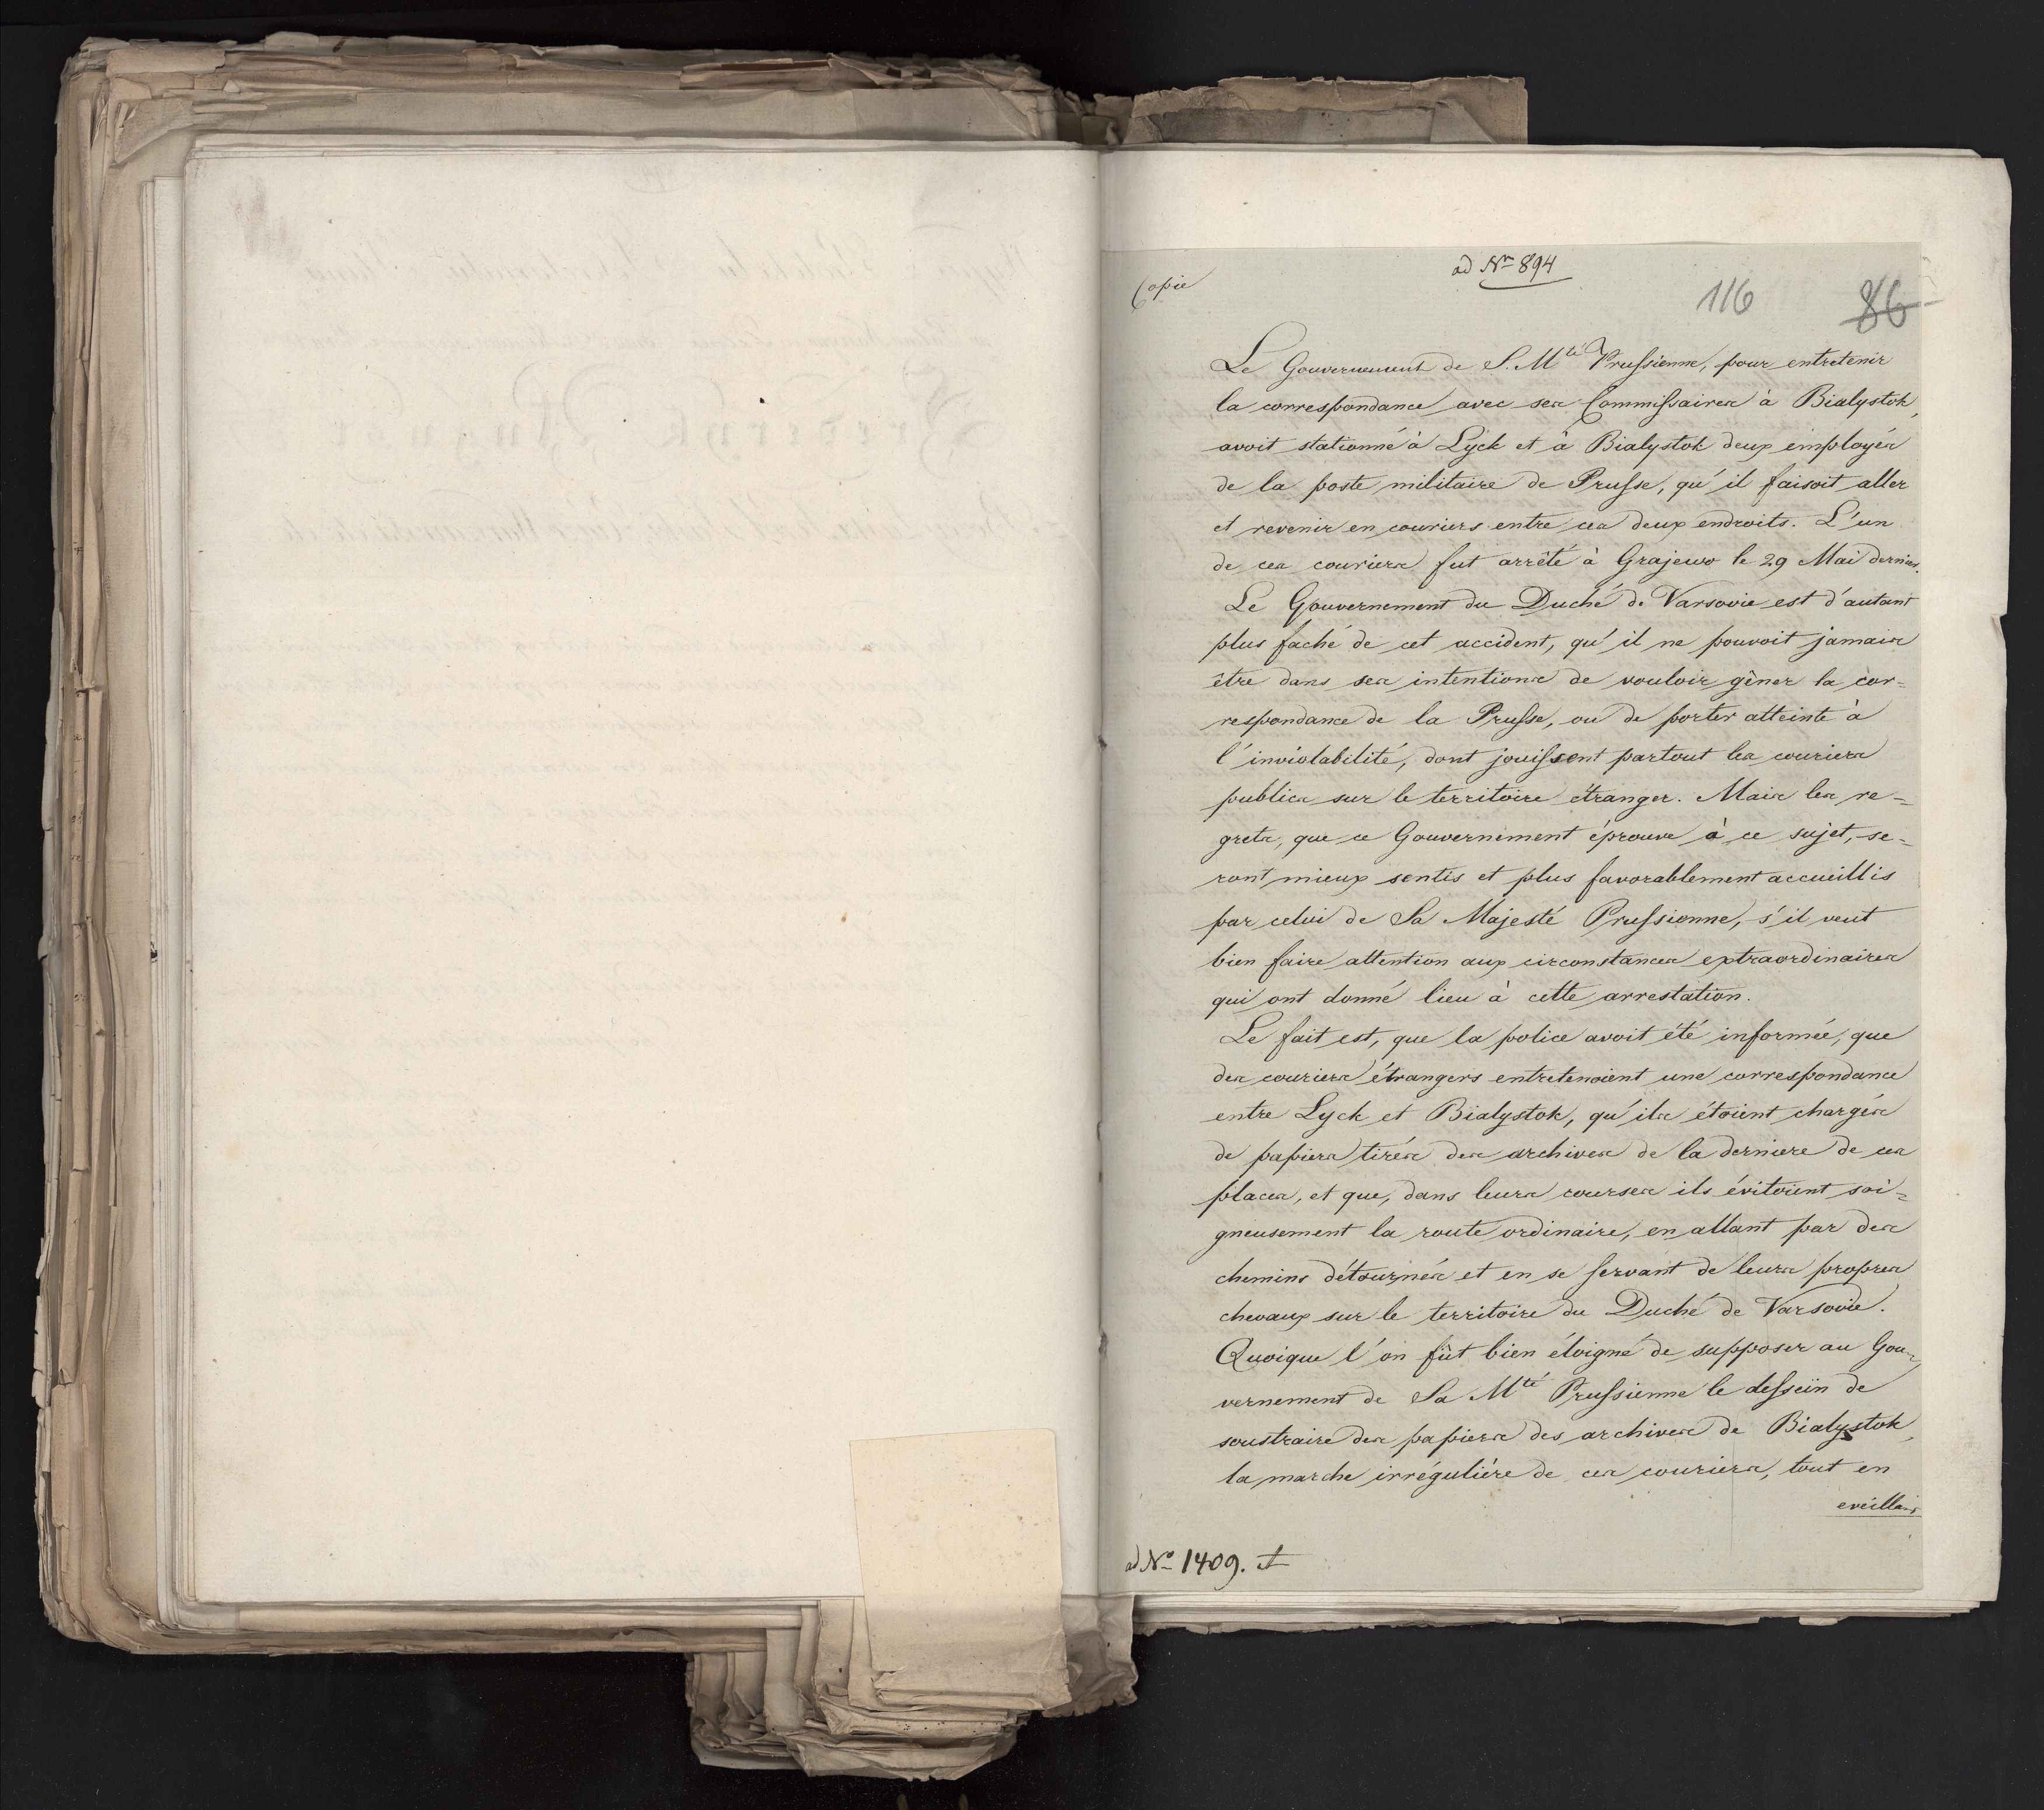 ad Nº 894
Copie
116
86
Le Gouvernement de S. Mté Prussienne, pour entretenir
la correspondance avec ses Commissaires à Bialystok,
avoit stationné à Lyck et à Bialystok deux employés
de la poste militaire de Prusse, qu'il faisoit aller
et revenir en couriers entre ces deux endroits. L'un
de ces couriers fut arrêté à Grajewo le 29 Mai dernier.
Le Gouvernement du Duché de Varsovie est d'autant
plus faché de cet accident, qu'il ne pouvoit jamais
être dans ses intentions de vouloir gêner la cor=
respondance de la Prusse, ou de porter atteinte à
l'inviolabilité, dont jouissent partout les couriers
publics sur le territoire étranger. Mais les re=
grets, que ce Gouvernement éprouve à ce sujet, se=
ront mieux sentis et plus favorablement accueillis
par celui de Sa Majesté Prussienne, s'il veut
bien faire attention aux circonstances extraordinaires
qui ont donné lieu à cette arrestation.
Le fait est, que la police avoit été informée, que
des couriers étrangers entretenoient une correspondance
entre Lyck et Bialystok, qu'ils étoient chargés
de papiers tirés des archives de la derniere de ces
places, et que, dans leurs courses ils évitoient soi=
gneusement la route ordinaire, en allant par des
chemins détournés et en se servant de leurs propres
chevaux sur le territoire du Duché de Varsovie.
Quoique l'on fût bien éloigné de supposer au Gou=
vernement de Sa Mté Prussienne le dessein de
soustraire des papiers des archives de Bialystok,
la marche irrégulière de ces couriers, tout en
eveillant
ad Nº 1409.